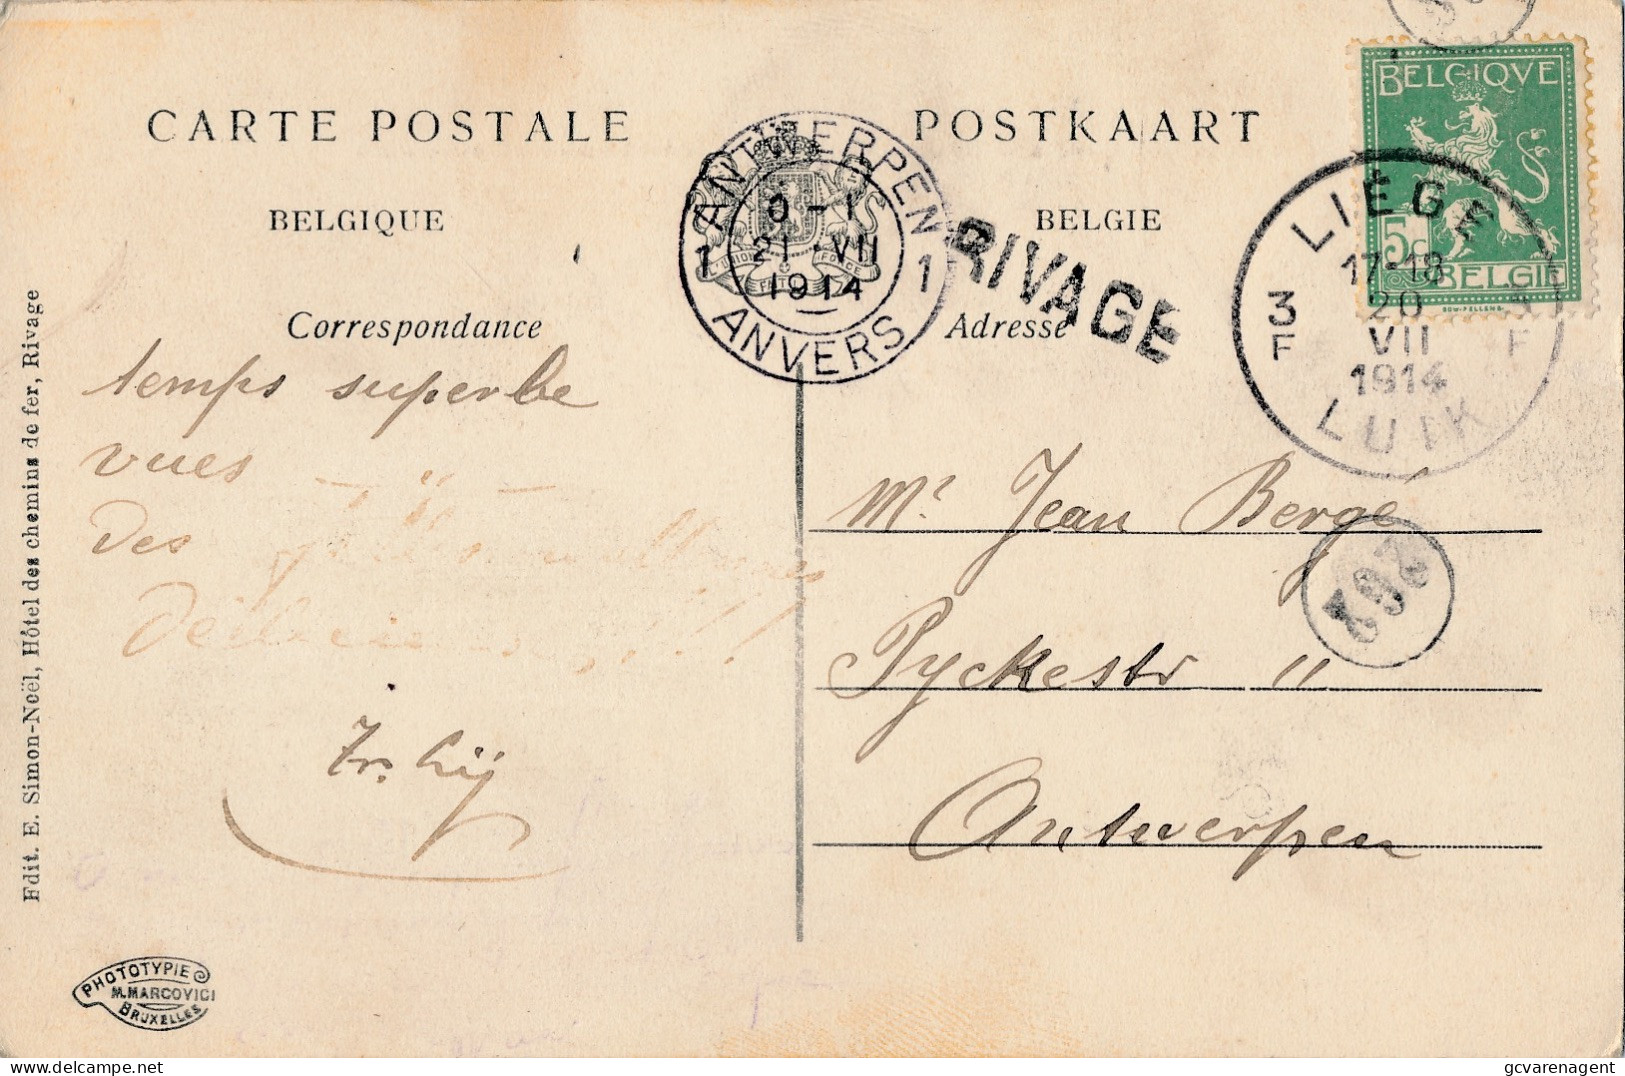 CARTE POSTALE
POSTKAART
BELGIQUE
BELGIE
Correspondance
Adresse
ANTWERPEN
1 0-1 1
21 VII
1914
ANVERS
RIVAGE
BELGIQVE
5c
BELGIË
LIÉGE
17-18
3 20 3
F VII F
1914
LUIK
temps superbe
vues — " —
des
Mr. Jean Bergé
262
Pyckestr "
Antwerpen
Edit. E. Simon-Noël, Hôtel des chemins de fer, Rivage
PHOTOTYPIE
M. MARCOVICI
BRUXELLES
Delcampe.net
gcvarenagent